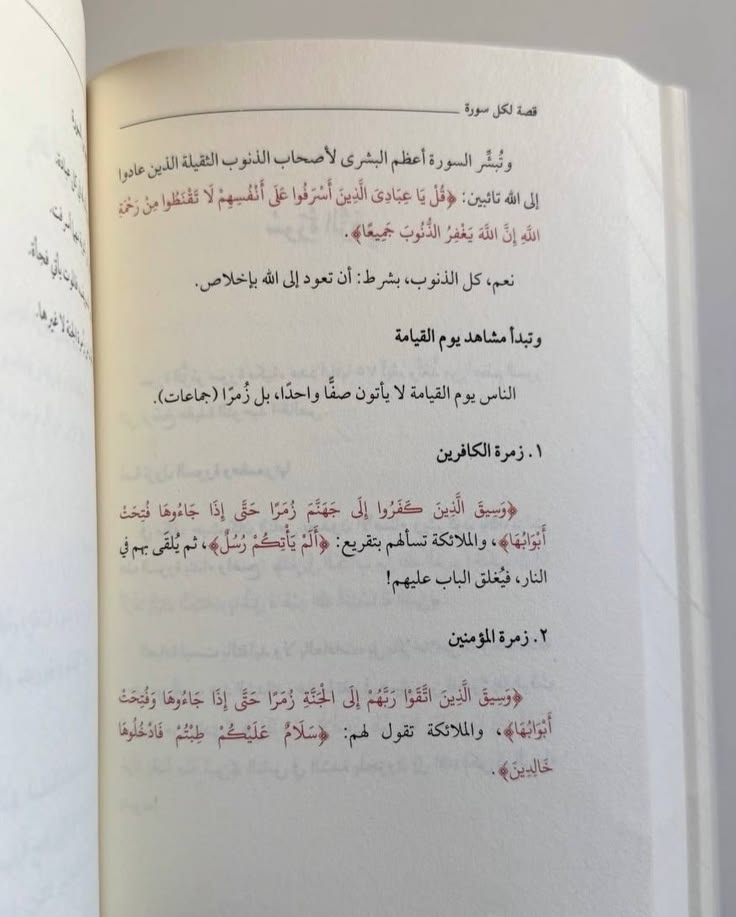 قصة لكل سورة
وتُبشِّر السورة أعظم البشرى لأصحاب الذنوب الثقيلة الذين عادوا
إلى الله تائبين: ﴿قُلْ يَا عِبَادِيَ الَّذِينَ أَسْرَفُوا عَلَى أَنْفُسِهِمْ لَا تَقْنَطُوا مِنْ رَحْمَةِ
اللَّهِ إِنَّ اللَّهَ يَغْفِرُ الذُّنُوبَ جَمِيعًا﴾.
نعم، كل الذنوب، بشرط: أن تعود إلى الله بإخلاص.
وتبدأ مشاهد يوم القيامة
الناس يوم القيامة لا يأتون صفًّا واحدًا، بل زُمرًا (جماعات).
١. زمرة الكافرين
﴿وَسِيقَ الَّذِينَ كَفَرُوا إِلَى جَهَنَّمَ زُمَرًا حَتَّى إِذَا جَاءُوهَا فُتِحَتْ
أَبْوَابُهَا﴾، والملائكة تسألهم بتقريع: ﴿أَلَمْ يَأْتِكُمْ رُسُلٌ﴾، ثم يُلقَى بهم في
النار، فيُغلق الباب عليهم!
٢. زمرة المؤمنين
﴿وَسِيقَ الَّذِينَ اتَّقَوْا رَبَّهُمْ إِلَى الْجَنَّةِ زُمَرًا حَتَّى إِذَا جَاءُوهَا وَفُتِحَتْ
أَبْوَابُهَا﴾، والملائكة تقول لهم: ﴿سَلَامٌ عَلَيْكُمْ طِبْتُمْ فَادْخُلُوهَا
خَالِدِينَ﴾.